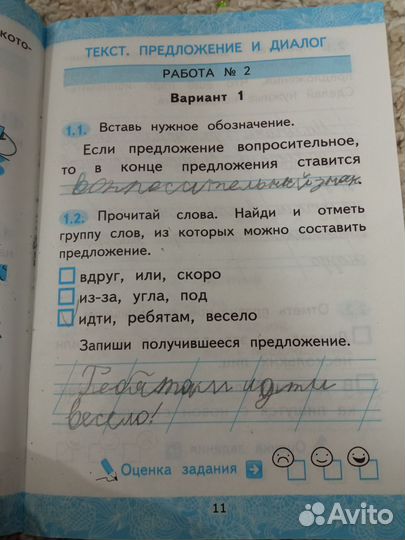 кото-
ТЕКСТ. ПРЕДЛОЖЕНИЕ И ДИАЛОГ
РАБОТА № 2
Вариант 1
1.1. Вставь нужное обозначение.
Если предложение вопросительное,
то в конце предложения ставится
вопросительный знак.
1.2. Прочитай слова. Найди и отметь
группу слов, из которых можно составить
предложение.
вдруг, или, скоро
из-за, угла, под
идти, ребятам, весело
Запиши получившееся предложение.
Ребятам идти
весело!
Оценка задания
11
Avito